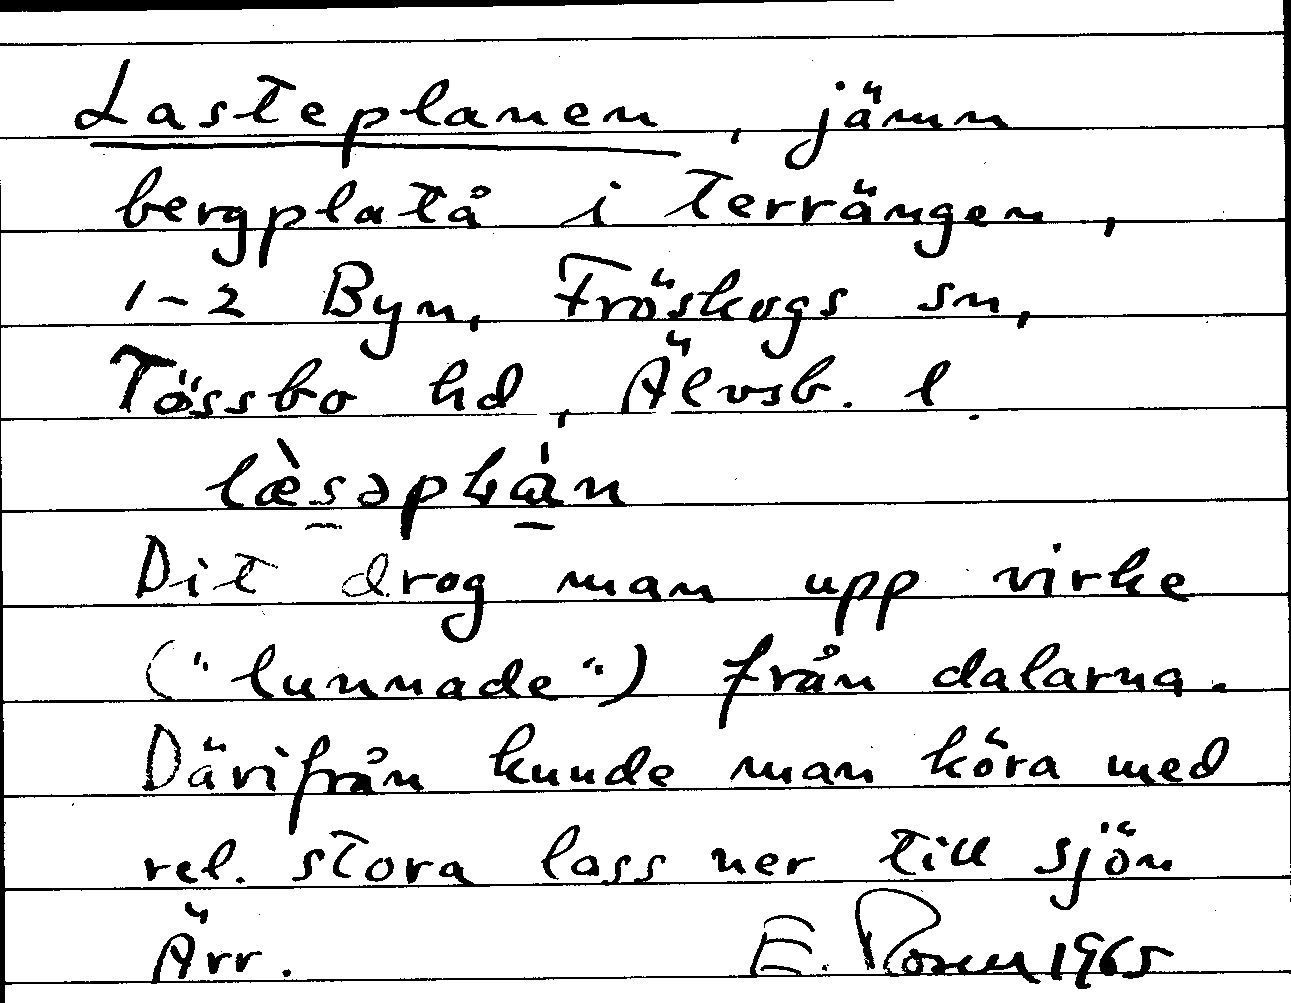 Lasteplanen, jämn
bergplatå i terrängen,
1-2 Byn, Fröskogs sn,
Tössbo hd, Älvsb. l.
læ̀səplán
Dit drog man upp virke
("lunnade") från dalarna.
Därifrån kunde man köra med
rel. stora lass ner till sjön
Ärr. E. Rosen 1965